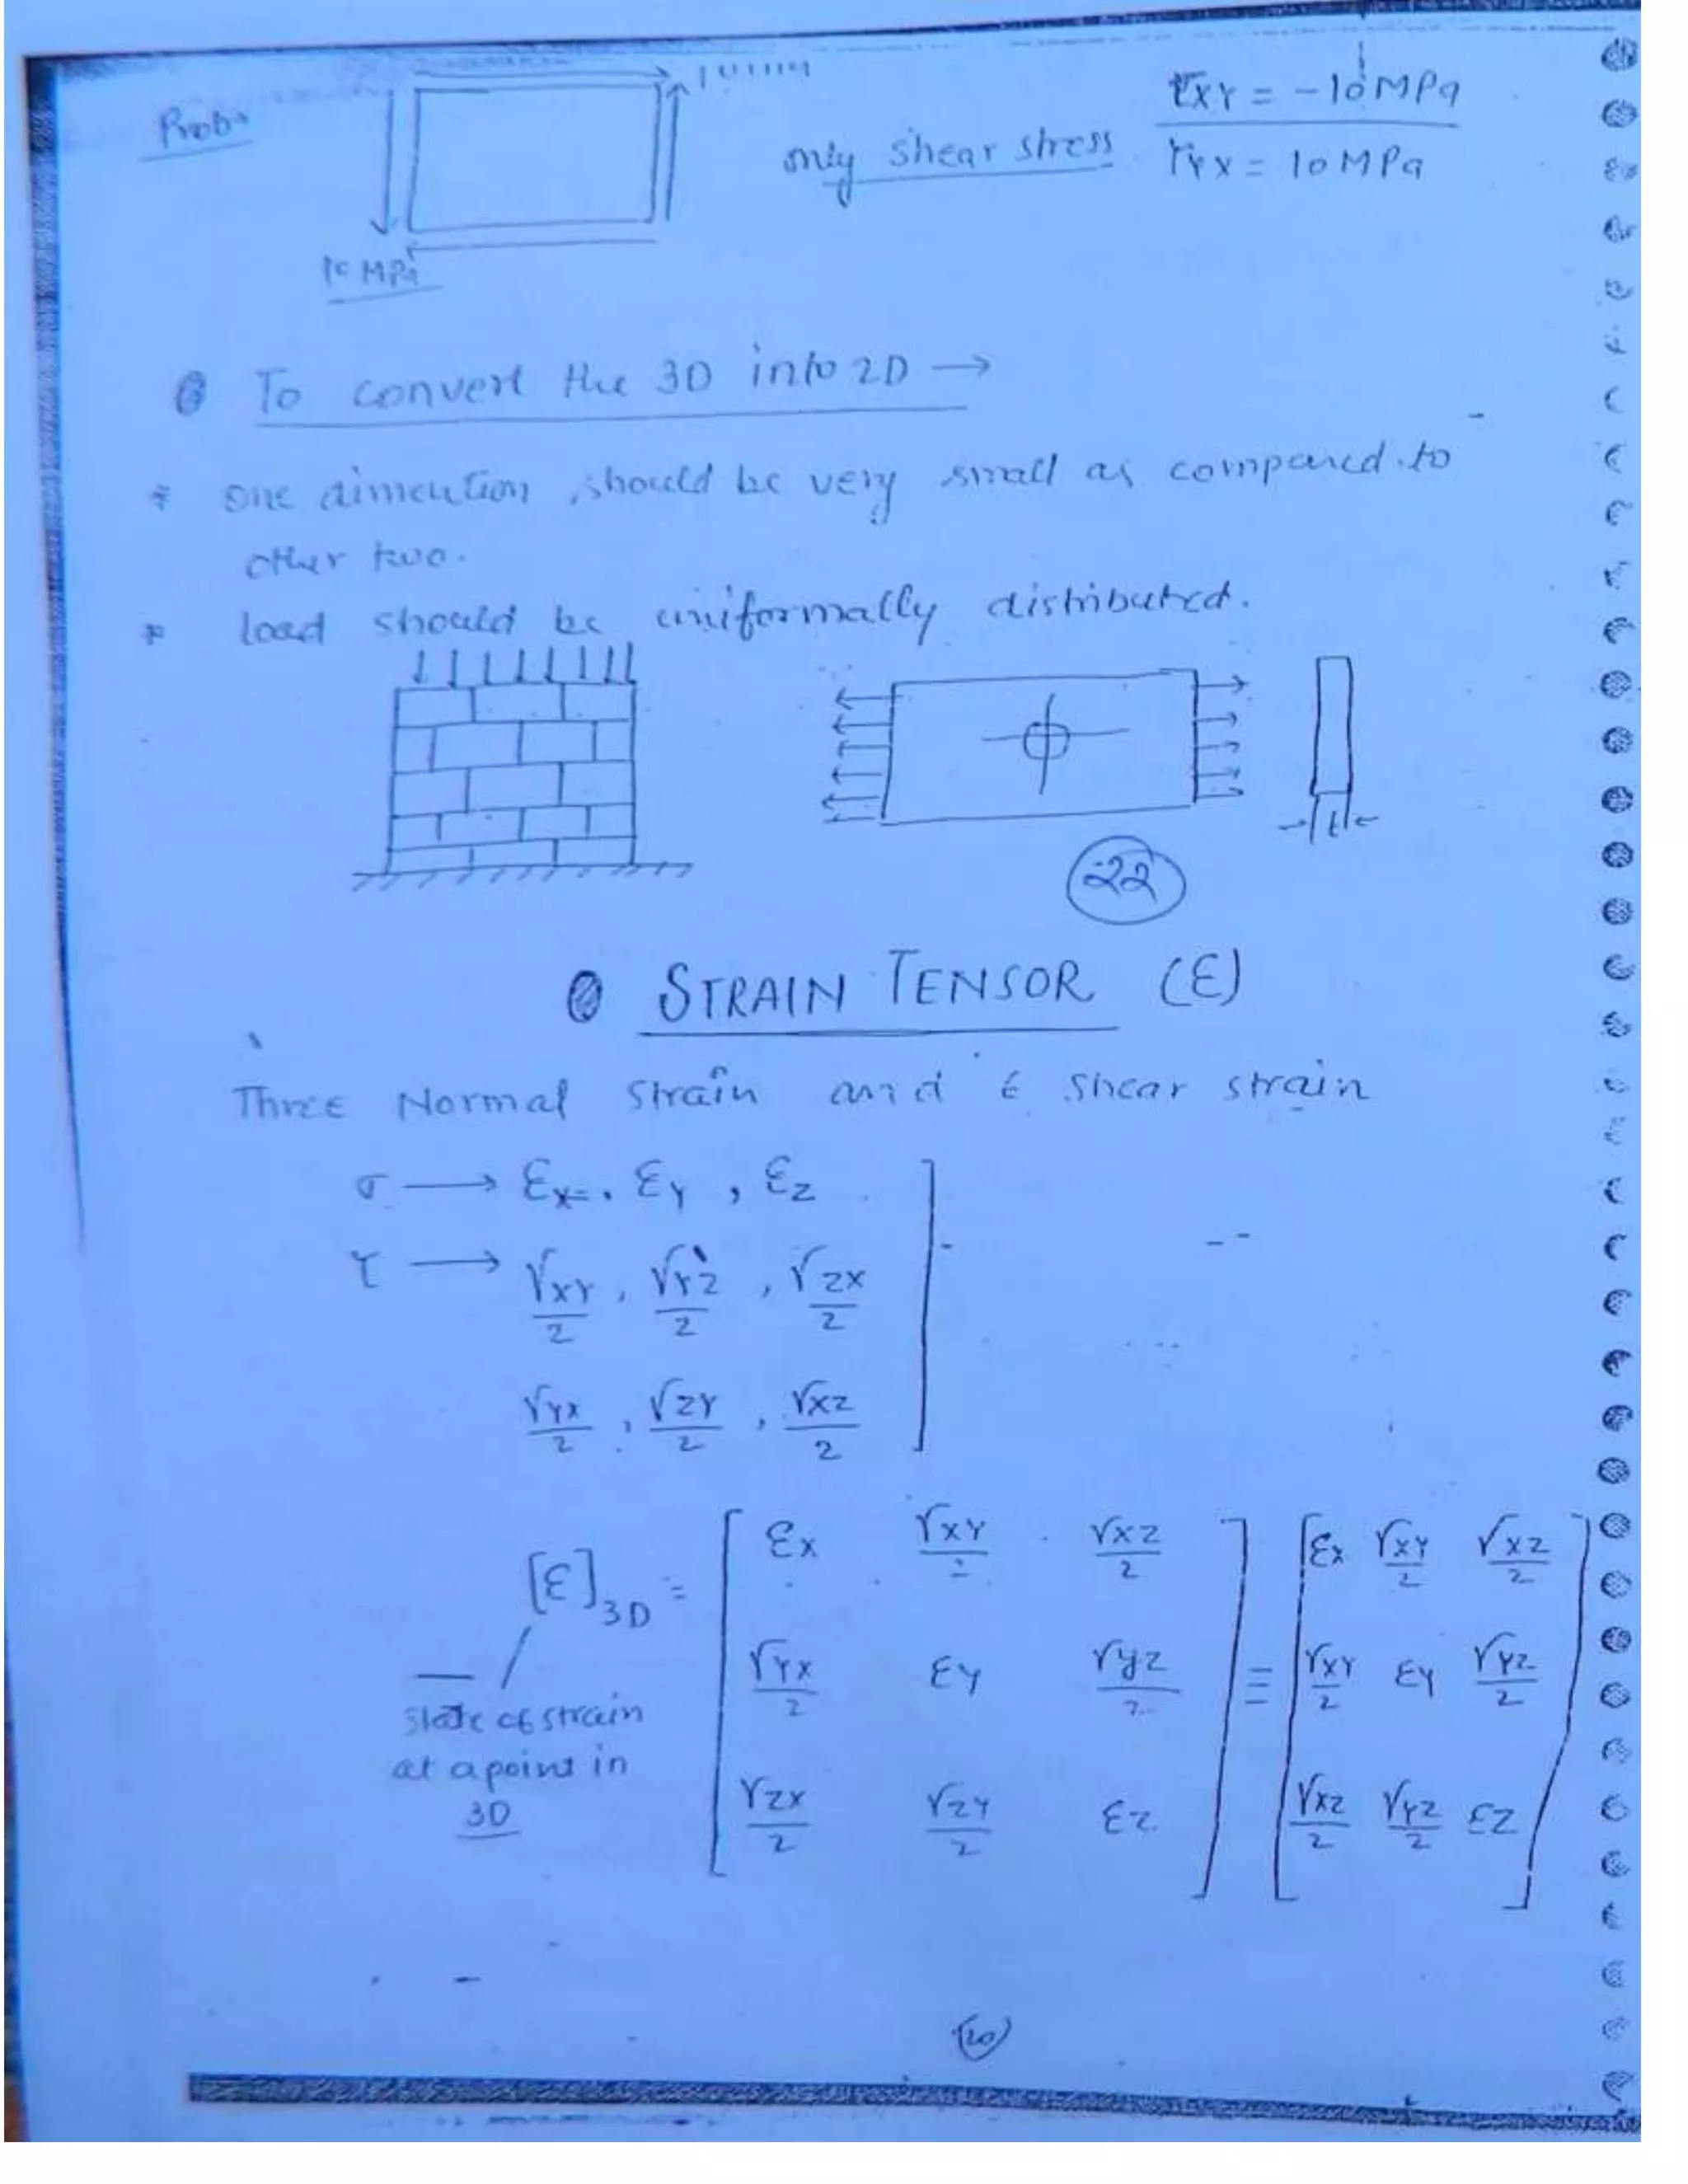 Prob:
only shear stress
τXY = -10 MPa
τYX = 10 MPa
10 MPa
To convert the 3D into 2D →
* one dimention should be very small as compared to
other two.
* load should be uniformally distributed.
t
22
STRAIN TENSOR (Ɛ)
Three Normal Strain and 6 shear strain
σ → ƐX, ƐY, ƐZ
τ → γXY/2, γYZ/2, γZX/2
γYX/2, γZY/2, γXZ/2
[Ɛ]3D = [ƐX γXY/2 γXZ/2] = [ƐX γXY/2 γXZ/2]
[γYX/2 ƐY γYZ/2] [γXY/2 ƐY γYZ/2]
[γZX/2 γZY/2 ƐZ] [γXZ/2 γYZ/2 ƐZ]
State of strain
at a point in
3D
(20)